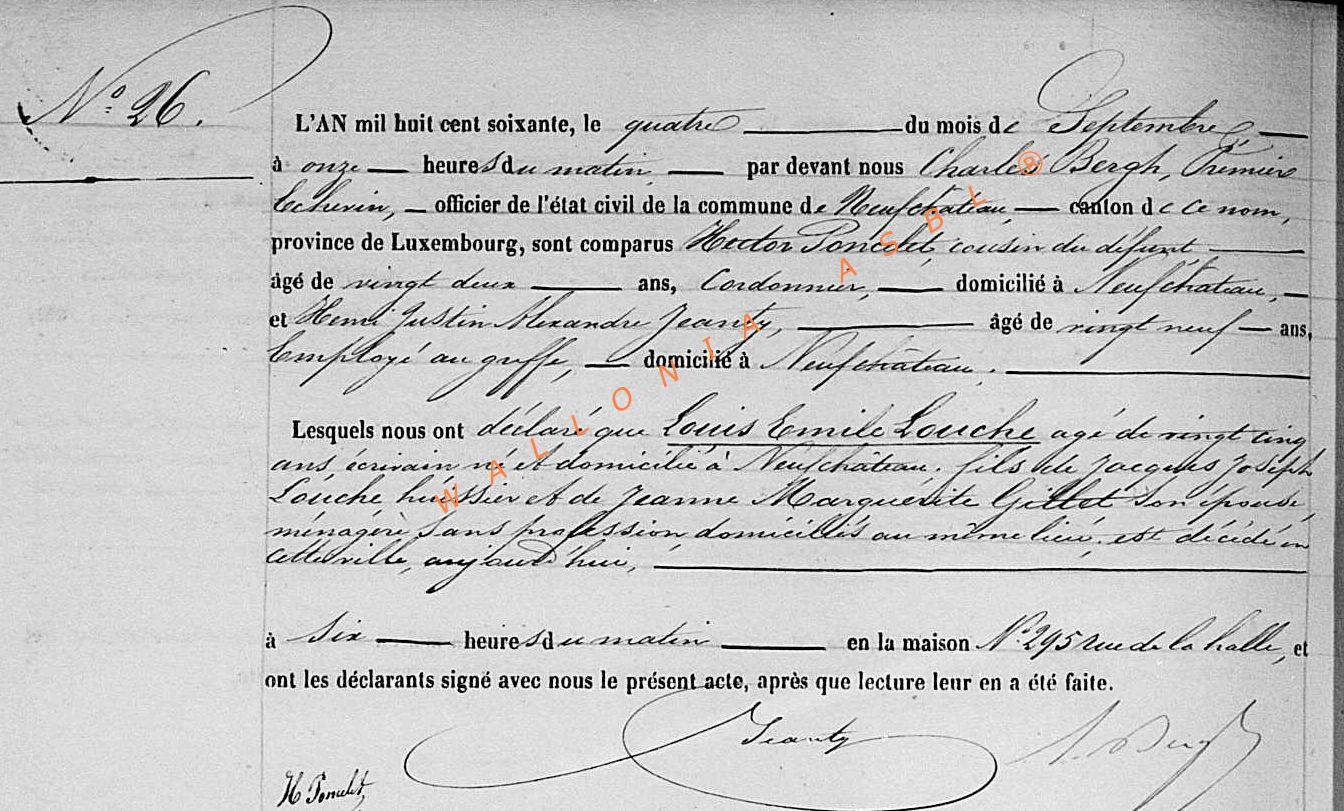 N° 26.
L'AN mil huit cent soixante, le quatre du mois de Septembre,
à onze heures du matin par devant nous Charles Bergh, Premier
Echevin, officier de l'état civil de la commune de Neufchâteau, canton de ce nom,
province de Luxembourg, sont comparus Hector Poncelet, cousin du défunt
âgé de vingt deux ans, Cordonnier, domicilié à Neufchâteau,
et Henri Justin Alexandre Jeanty, âgé de vingt neuf ans,
Employé au greffe, domicilié à Neufchâteau.
Lesquels nous ont déclaré que Louis Emile Louche agé de vingt cinq
ans, écrivain né et domicilié à Neufchâteau, fils de Jacques Joseph
Louche, huissier et de Jeanne Marguérite Gillet son épouse,
ménagère sans profession domiciliés au même lieu, est décédé en
cette ville, aujourd'hui,
à Six heures du matin en la maison N° 295 rue de la halle, et
ont les déclarants signé avec nous le présent acte, après que lecture leur en a été faite.
Jeanty
H Poncelet,
WALLONIA ASBL ®